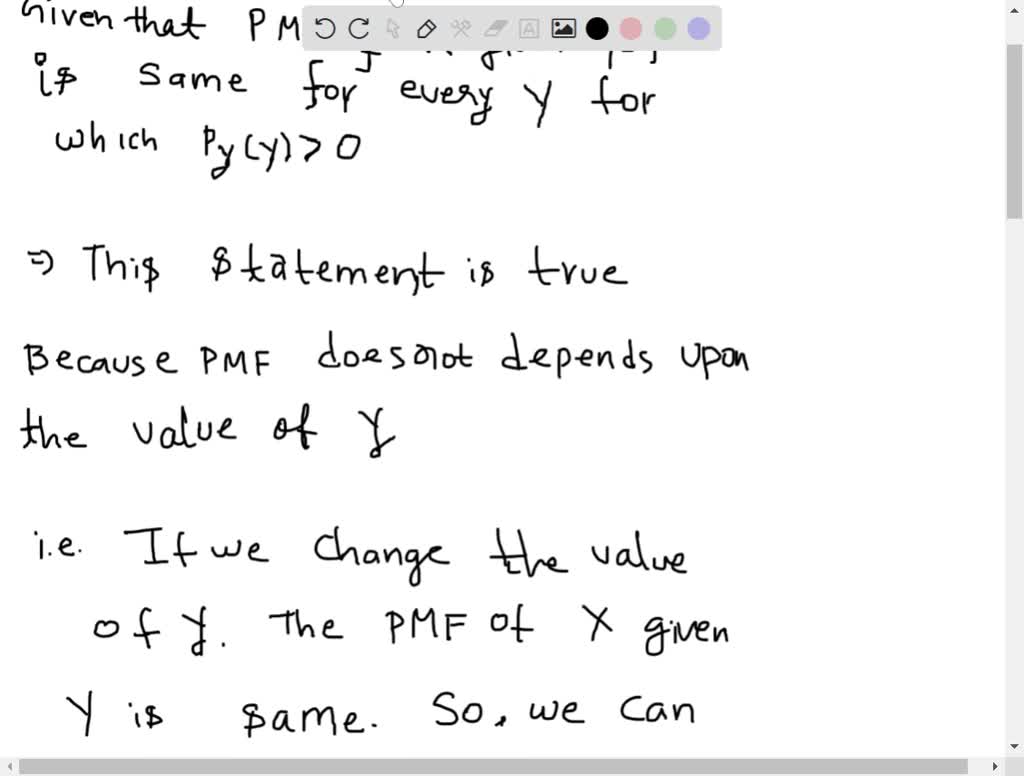 Given that PM
is same for every y for
which Py(y)>0
⇒ This statement is true
Because PMF doesnot depends upon
the value of y
i.e. If we change the value
of y. The PMF of X given
Y is same. So, we can